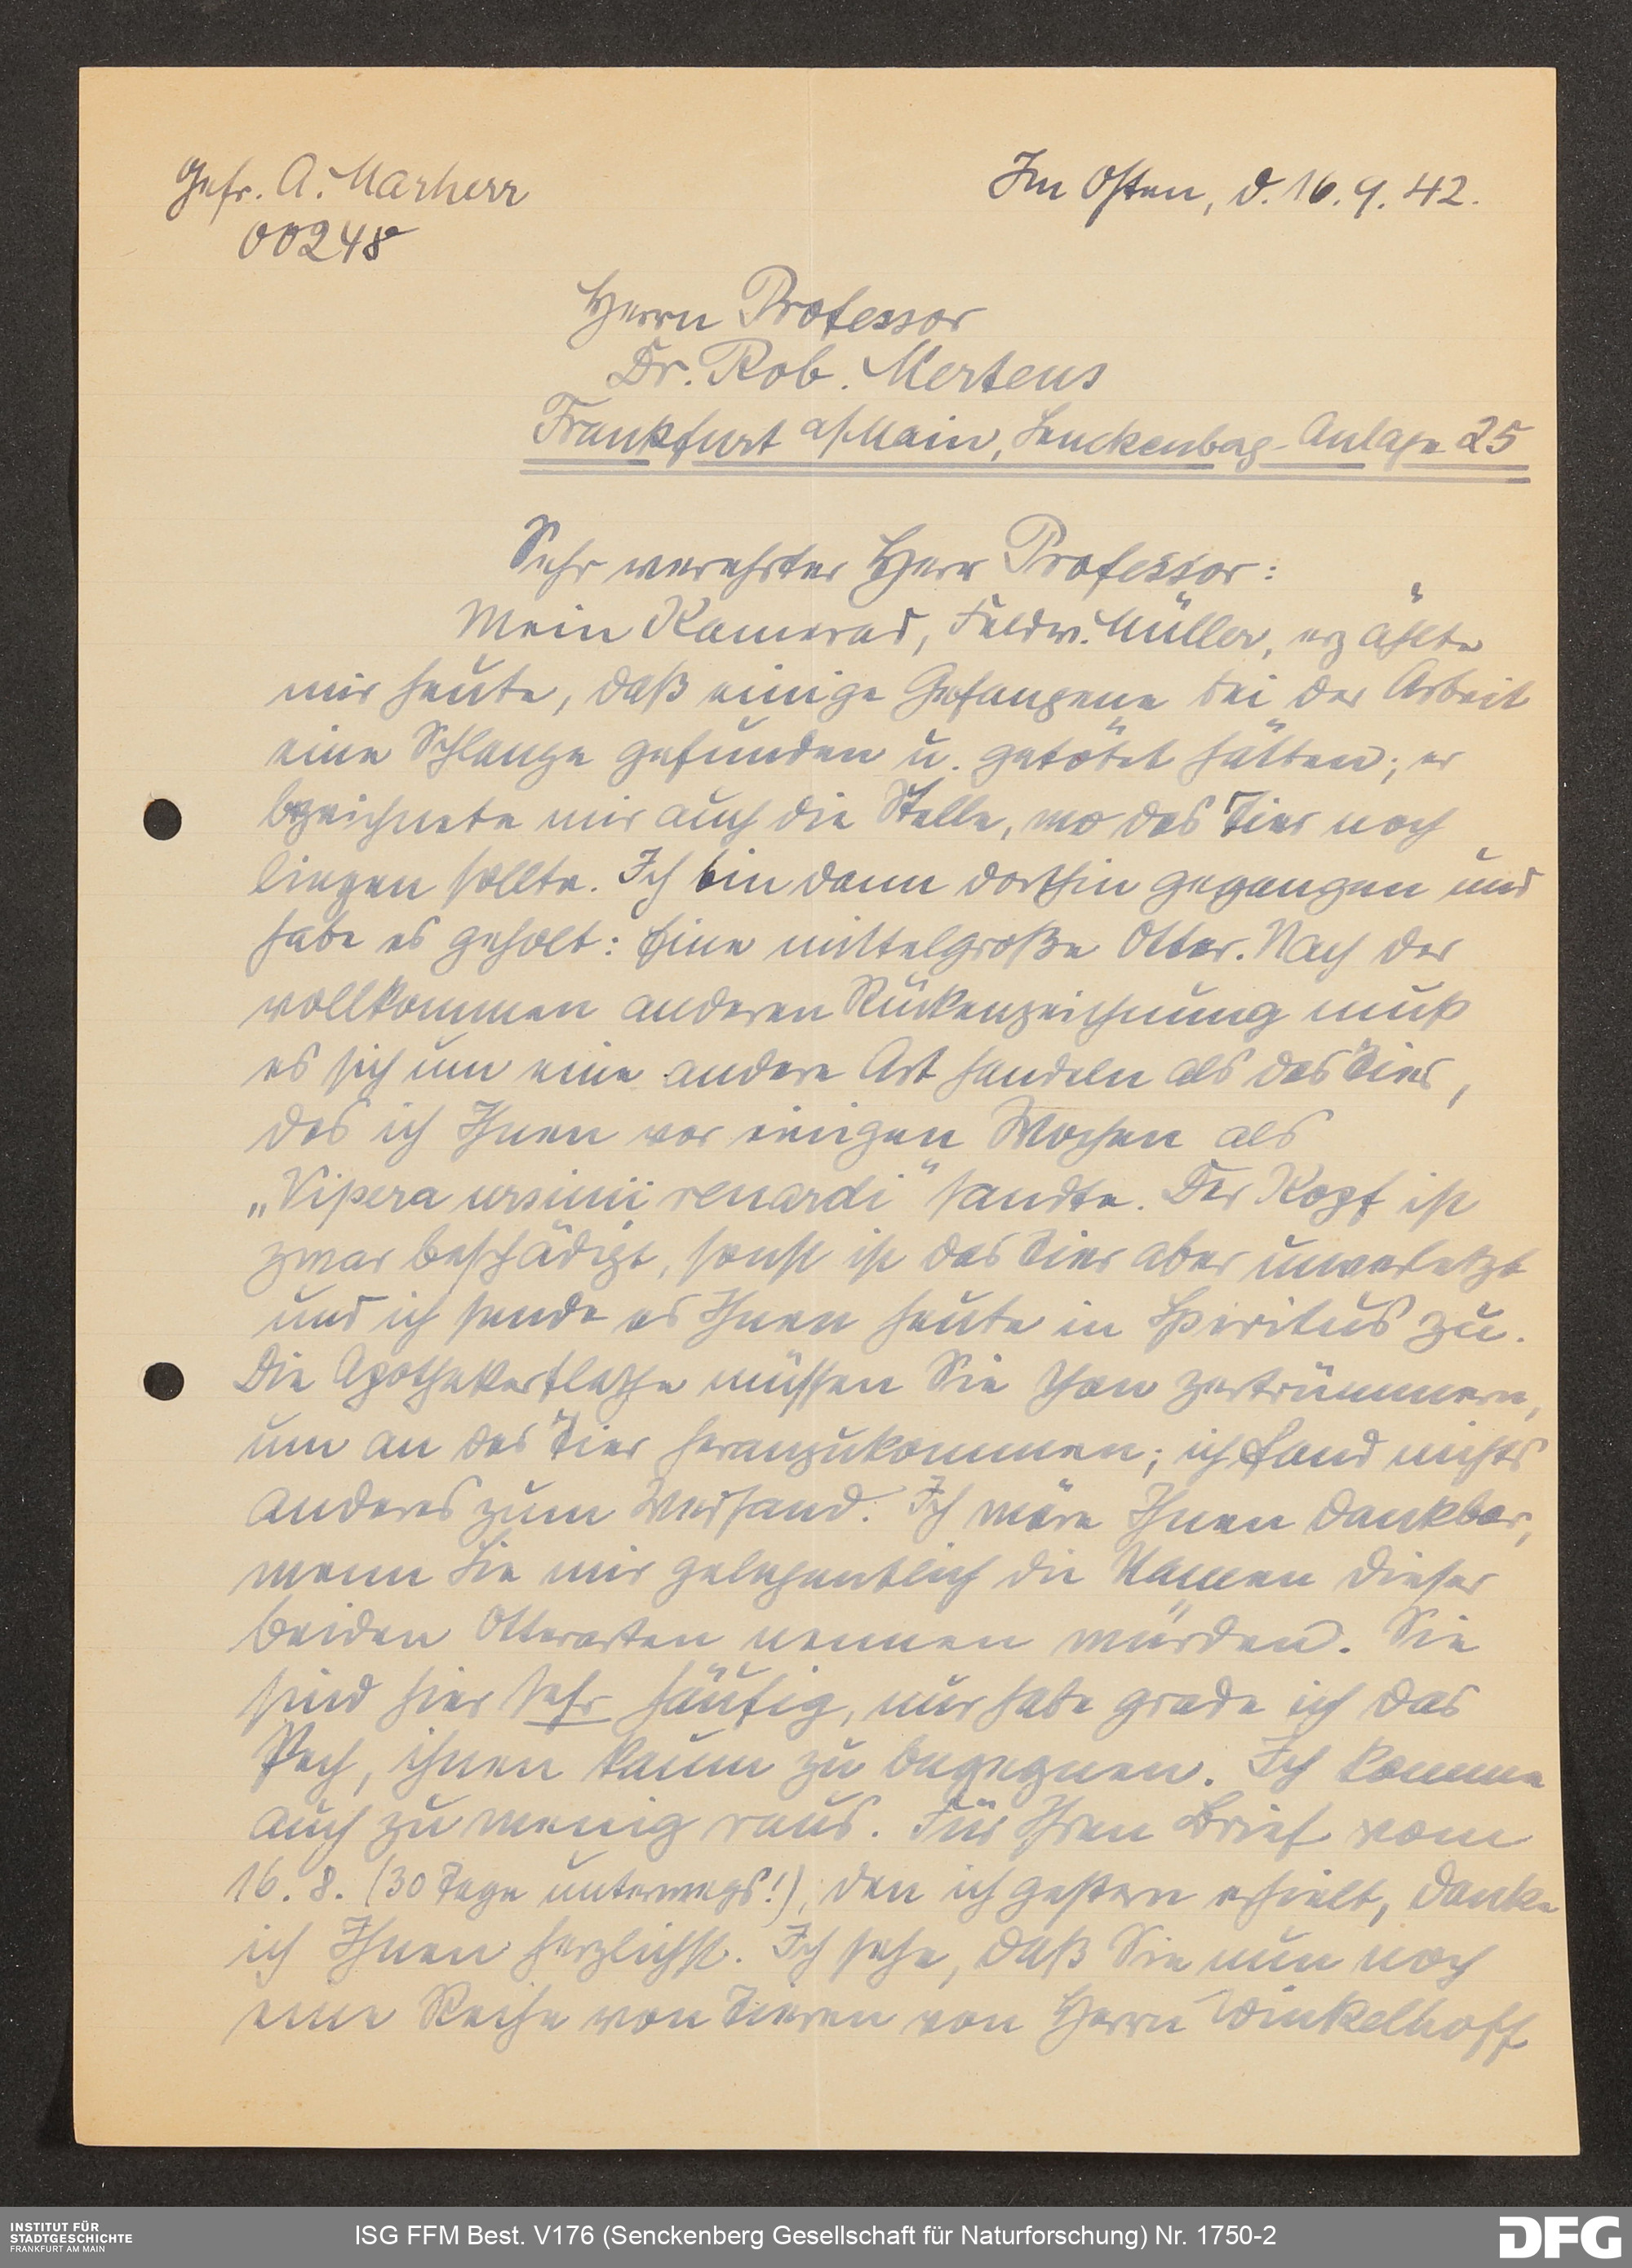 Gefr. A. Marherr
00248
Im Osten, d. 16. 9. 42.
Herrn Professor
Dr. Rob. Mertens
Frankfurt a/Main, Senckenbag-Anlage 25
Sehr verehrter Herr Professor:
Mein Kamerad, Feldw. Müller, erzählte
mir heute, daß einige Gefangene bei der Arbeit
eine Schlange gefunden u. getötet hätten; er
bezeichnete mir auch die Stelle, wo das Tier noch
liegen sollte. Ich bin dann dorthin gegangen und
habe es geholt: Eine mittelgroße Otter. Nach der
vollkommen anderen Rückenzeichnung muß
es sich um eine andere Art handeln als das Tier,
das ich Ihnen vor einigen Wochen als
„Vipera ursinii renardi" sandte. Der Kopf ist
zwar beschädigt, sonst ist das Tier aber unverletzt
und ich sende es Ihnen heute in Spiritus zu.
Die Apothekerflasche müssen Sie schon zertrümmern,
um an das Tier heranzukommen; ich fand nichts
anderes zum Versand. Ich wäre Ihnen dankbar,
wenn Sie mir gelegentlich die Namen dieser
beiden Otterarten nennen würden. Sie
sind hier sehr häufig, nur habe grade ich das
Pech, ihnen kaum zu begegnen. Ich komme
auch zu wenig raus. Für Ihren Brief vom
16. 8. (30 Tage unterwegs!), den ich gestern erhielt, danke
ich Ihnen herzlichst. Ich sehe, daß Sie nun noch
eine Reihe von Tieren von Herrn Winkelhoff
INSTITUT FÜR
STADTGESCHICHTE
FRANKFURT AM MAIN
ISG FFM Best. V176 (Senckenberg Gesellschaft für Naturforschung) Nr. 1750-2
DFG